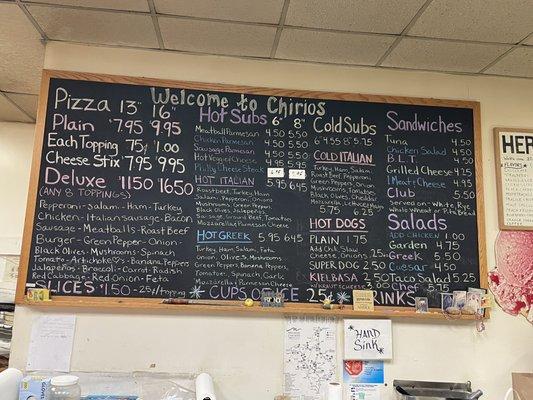 Welcome to Chirios
Pizza 13" 16"
Plain $7.95 $9.95
Each Topping 75¢ 1.00
Cheese Stix $7.95 $9.95
Deluxe $11.50 $16.50
(Any 8 Toppings)
Pepperoni - Salami - Ham - Turkey
Chicken - Italian Sausage - Bacon
Sausage - Meatballs - Roast Beef
Burger - Green Pepper - Onion -
Black Olives - Mushrooms - Spinach
Tomato - Artichokes - Banana Peppers
Jalapeños - Broccoli - Carrot - Radish
Red Cabbage - Red Onion - Feta
Slices $1.50 - 25¢/topping
Hot Subs 6" 8"
Meatball Parmesan 4.50 5.50
Chicken Parmesan 4.50 5.50
Sausage Parmesan 4.50 5.50
Hot Veggie Cheese 4.50 5.50
Philly Cheese Steak
Hot Italian 5.95 6.45
Roast Beef, Turkey, Ham
Salami, Pepperoni, Onions
Mushrooms, Green Peppers
Black Olives, Jalapeños
Sausage, Ground Beef, Tomatoes
Mozzarella Cheese
Hot Greek 5.95 6.45
Turkey, Ham, Salami, Feta
Onion, Olives, Mushrooms
Green Peppers, Banana Peppers,
Tomatoes, Spinach, Garlic
Mozzarella Cheese
Cups of Ice 25¢
Drinks
Cold Subs
6" 4.75 8" 5.75
Cold Italian
Turkey, Ham, Salami,
Roast Beef, Pepperoni,
Green Peppers, Onions
Mushrooms, Tomatoes
Black Olives, Cheddar
Mozzarella, Lettuce, Mayo
5.75 6.25
Hot Dogs
Plain 1.75
Add Chili, Slaw
Cheese, Onions .25
Super Dog 2.50
Kielbasa 2.50
w/Kraut & Cheese 3.00
Sandwiches
Tuna 4.50
Chicken Salad 4.50
B.L.T. 4.50
Grilled Cheese 4.25
Meat & Cheese 4.95
Club 5.50
Served on - White, Rye
Whole Wheat or Pita Bread
Salads
Add Chicken 1.00
Garden 4.75
Greek 5.50
Caesar 4.50
Taco Salad 5.25
Chef 5.75
HER
FLAVORS
HAND
Sink